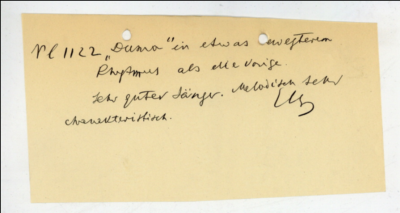 Pl 1122 „Duma" in etwas bewegterem
Rhytmus als alle vorige.
Sehr guter Sänger. Melodisch sehr
charakteristisch.